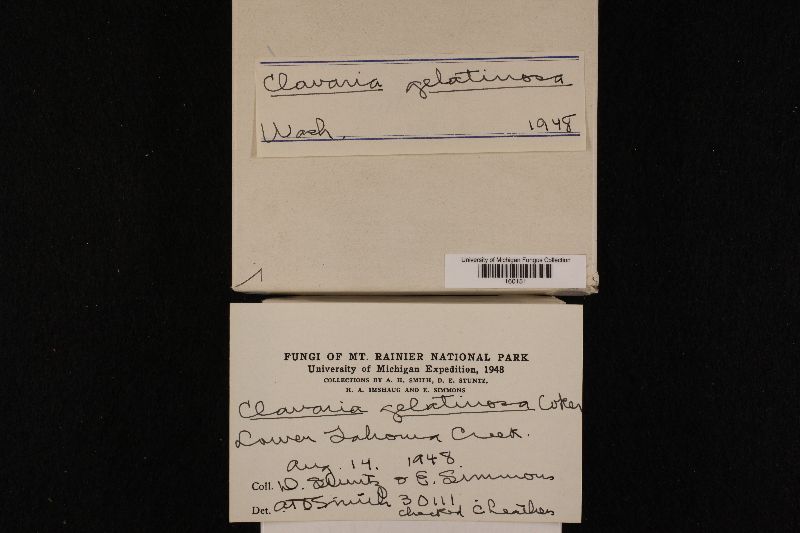 Clavaria gelatinosa
Wash. 1948
University of Michigan Fungus Collection
160151
FUNGI OF MT. RAINIER NATIONAL PARK
University of Michigan Expedition, 1948
COLLECTIONS BY A. H. SMITH, D. E. STUNTZ,
H. A. IMSHAUG AND E. SIMMONS
Clavaria gelatinosa Coker
Lower Tahoma Creek.
Aug. 14. 1948
Coll. D. Stuntz & E. Simmons
Det. AHSmith 30111
checked C Leathers